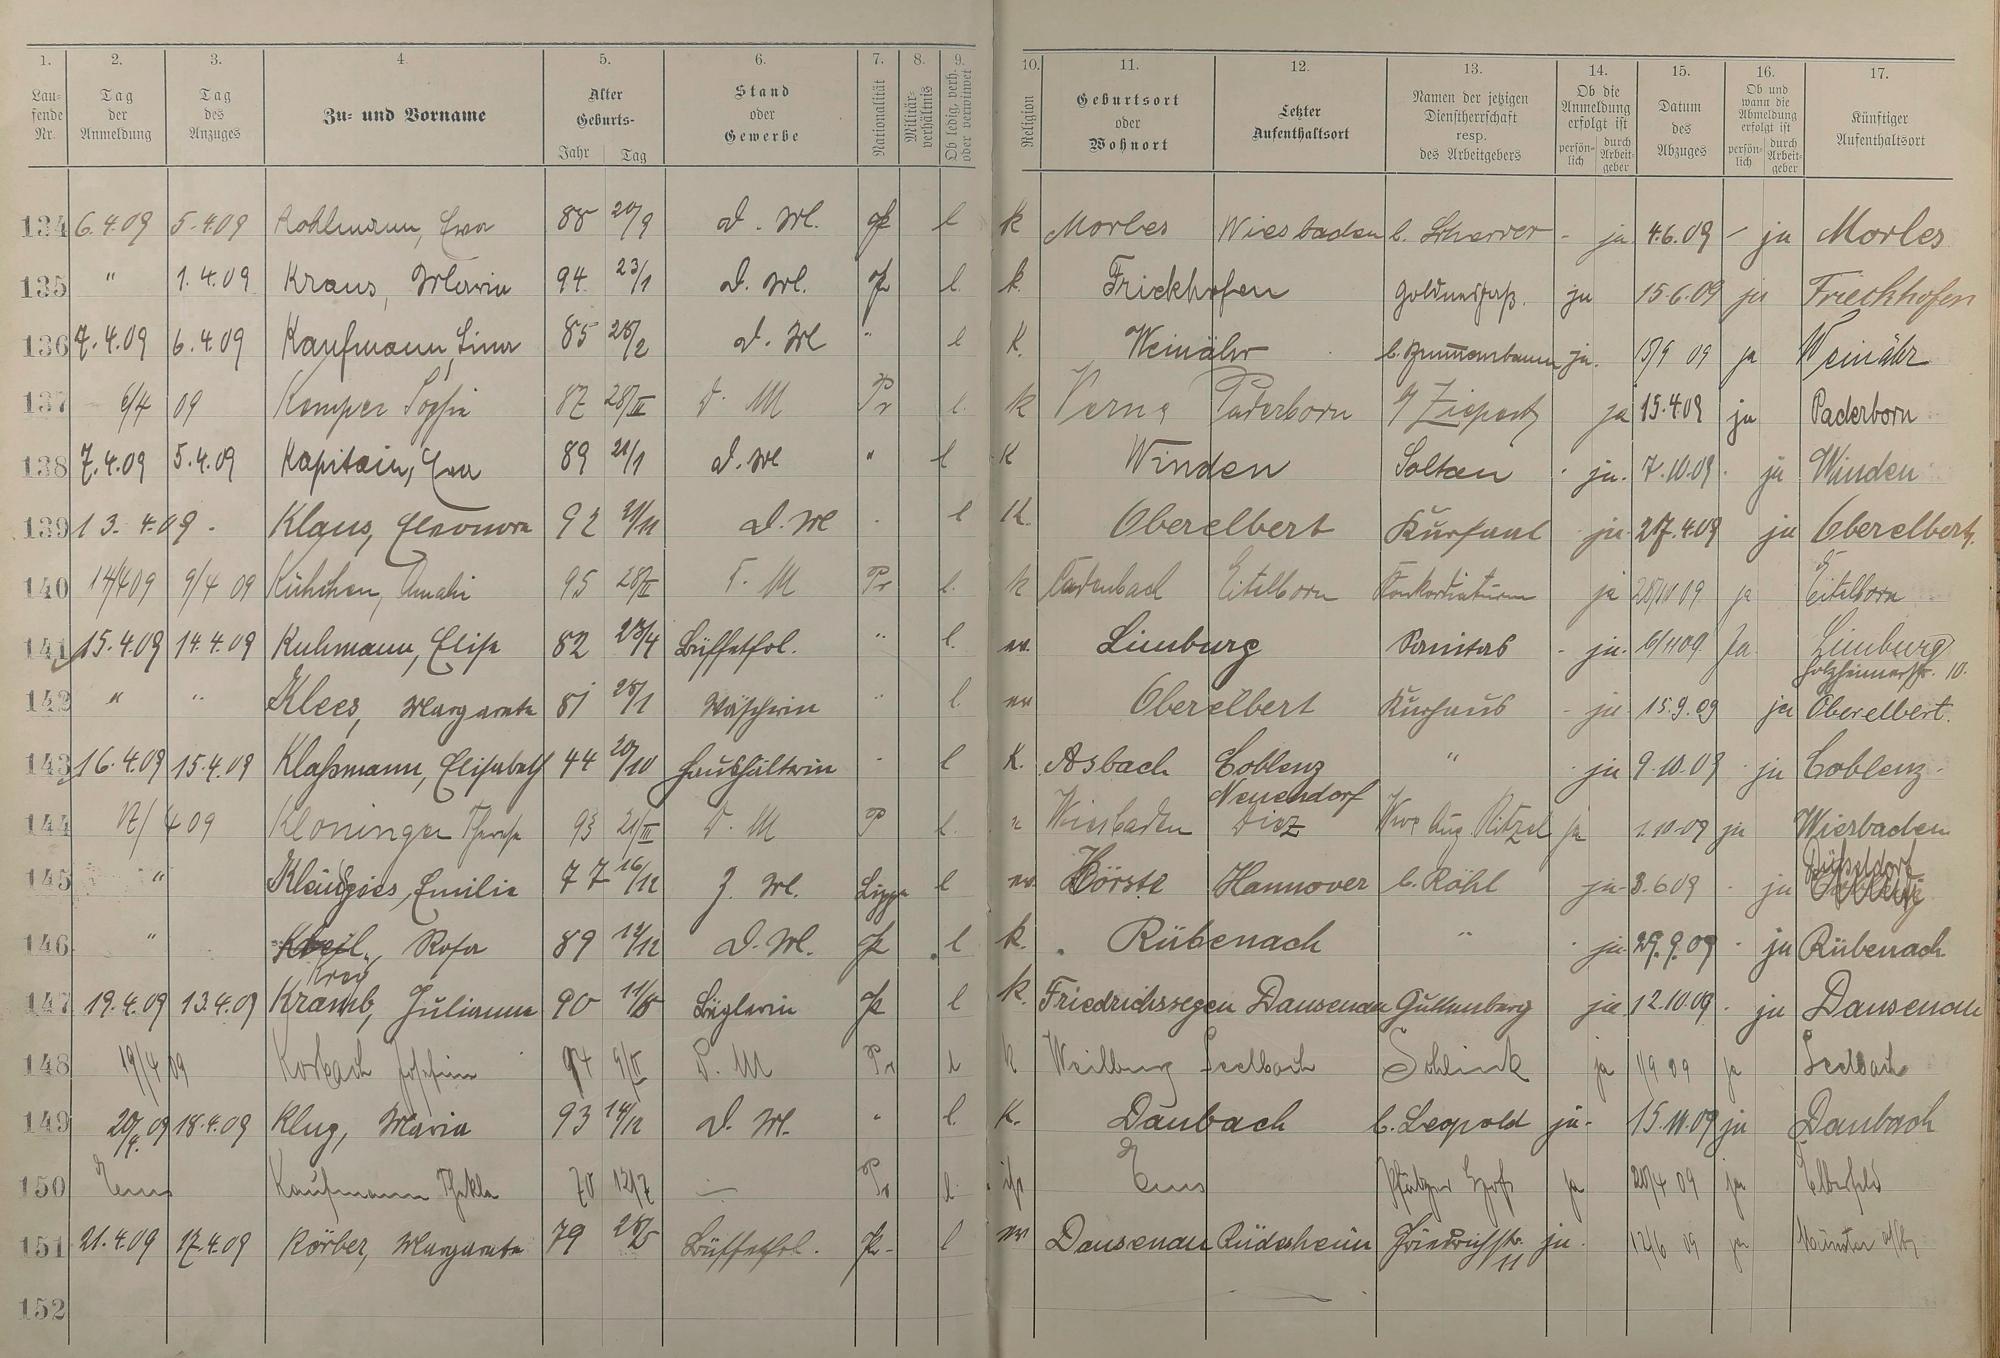 1. 2. 3. 4. 5. 6. 7. 8. 9. 10. 11. 12. 13. 14. 15. 16. 17.
Lau-fende Nr. Tag der Anmeldung Tag des Anzuges Zu- und Vorname Alter Geburts- Jahr Tag Stand oder Gewerbe Nationalität Militär-verhältnis Ob ledig, verh. oder verwitwet Religion Geburtsort oder Wohnort Letzter Aufenthaltsort Namen der jetzigen Dienstherrschaft resp. des Arbeitgebers Ob die Anmeldung erfolgt ist persön-lich durch Arbeit-geber Datum des Abzuges Ob und wann die Abmeldung erfolgt ist persön-lich durch Arbeit-geber Künftiger Aufenthaltsort
134 6.4.09 5.4.09 Kohlmann, Eva 88 20/9 D. M. l k Morles Wiesbaden b. Scherrer - ja 4.6.09 - ja Morles
135 " 1.4.09 Kraus, Maria 94 23/1 D. M. l. k. Frickhofen ja 15.6.09 ja Frickhofen
136 7.4.09 6.4.09 Kaufmann, Lina 85 28/2 D. M " l K. Weinähr ja. 15/9 09 ja Weinähr
137 6/4 09 Kemper Sophie 87 28/III D. M Pr l. k Verne Paderborn ja 15.4.09 ja Paderborn
138 7.4.09 5.4.09 Kapitain, Eva 89 21/1 D. M " l K Winden Soltau ja. 7.10.09 ja Winden
139 13.4.09. Klaus, Eleonora 92 21/11 D. M l K. Oberelbert Kursaal ja. 27.4.09 ja Oberelbert.
140 14/4 09 9/4 09 Kühchen, Amalie 95 28/II D. M Pr l. k Cadenbach Eitelborn Konkordiaturm ja 28/10 09 ja Eitelborn
141 15.4.09 14.4.09 Kuhmann, Elise 82 23/4 Büffetfrl. " l. ev. Limburg Sanitas - ja. 6/11 09 Ja Limburg Holzheimerstr. 10.
142 " " Klees, Margareta 81 28/1 Wäscherin " l. ev Oberelbert Kurhaus - ja 15.9.09 ja Oberelbert.
143 16.4.09 15.4.09 Klaßmann, Elisabeth 44 20/10 Haushälterin l K. Asbach Coblenz Neuendorf " ja 9.10.09 ja Coblenz.
144 17/4 09 Kloninger Therese 93 21/III D. M P l. Wiesbaden Diez Wwe Aug. Ritzel ja 1.10.09 ja Wiesbaden
145 " Emilie 77 16/12 Z. M. Lippe l ev. Hörste Hannover b. Röhl ja 3.6.09 ja Düsseldorf
146 " Krey, Rosa 89 12/12 D. M. l k. Rübenach " ja 29.9.09 ja Rübenach
147 19.4.09 13.4.09 Kramb, Julianna 90 11/8 Büglerin l k. Friedrichssegen Dausenau Guttenberg ja 12.10.09 ja Dausenau
148 19/4 09 Korbach Josefine 94 D. M Pr l k Weilburg Seelbach Schlink ja 1/9 09 ja Seelbach
149 20/4. 09 18.4.09 Klug, Maria 93 14/12 D. M. " l. K. Daubach b. Leopold ja. 15.11.09 ja Daubach
150 Ems Kaufmann Thekla 70 12/7 Pr l. Ems ja 20/4 09 ja Elberfeld
151 21.4.09 17.4.09 Körber, Margareta 79 Büffetfrl. Pr. l ev Dausenau Rüdesheim Friedrichstr. 11 ja. 12/6 09 ja Münster
152